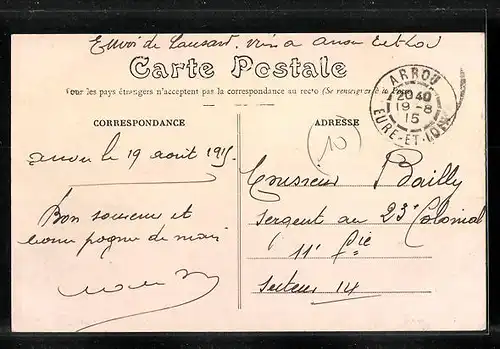 Envoi de
Carte Postale
Tous les pays étrangers n'acceptent pas la correspondance au recto (Se renseigner à la Poste)
ARROU
20 40
19 - 8
15
EURE-ET-LOIR
CORRESPONDANCE
ADRESSE
10
19 août 1915
Monsieur Bailly
Sergent au 23e Colonial
11e Cie
Secteur 14
Bon souvenir et
bonne pogne de main